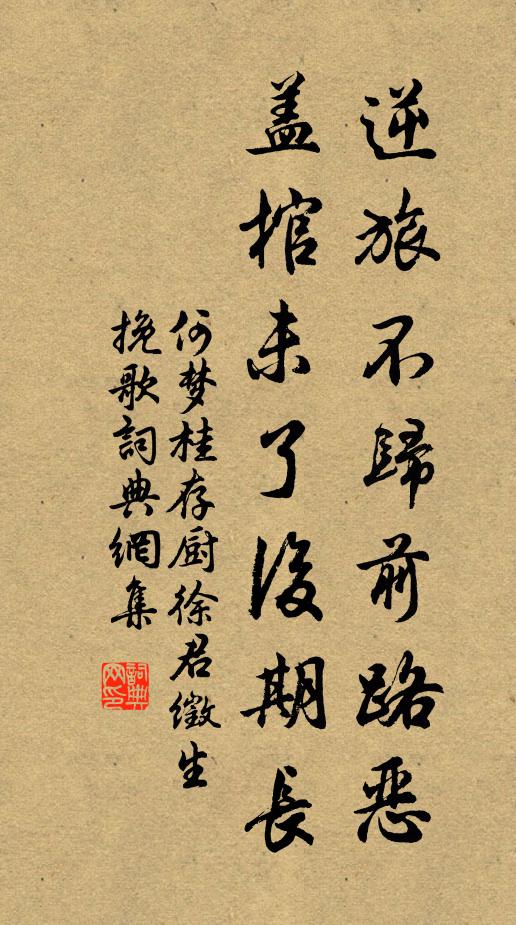 逆旅不歸前路惡
盖棺未了後期長
何梦桂存厨徐君徵生
挽歌詞典網集
詞典网印